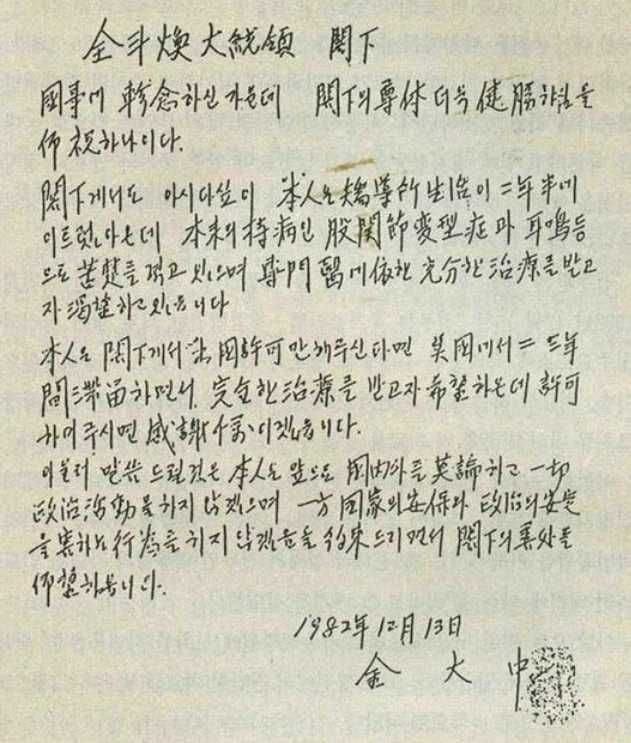 全斗煥大統領 閣下
國事에 軫念하신 가운데 閣下의 尊体 더욱 健勝하심을
仰祝하나이다.
閣下께서도 아시다싶이 本人은 矯導所生活이 二年半에
이르렀아온데 本来의 持病인 股関節変型症과 耳鳴等
으로 苦楚를 격고 있으며 専門醫에 依한 充分한 治療를 받고
자 渴望하고 있읍니다
本人은 閣下께서 出国許可만 해주신다면 美国에서 二 三年
間 滞留하면서 完全한 治療를 받고자 希望하온데 許可
하여 주시면 感謝千万이겠읍니다.
아울러 말씀 드릴것은 本人은 앞으로 国内外를 莫論하고 一切
政治活動를 하지 않겠으며 一方 国家의 安保와 政治의 安定
을 害하는 行為를 하지 않겠음을 約束드리면서 閣下의 善処를
仰望하옵니다.
1982年 12月 13日
金 大 中